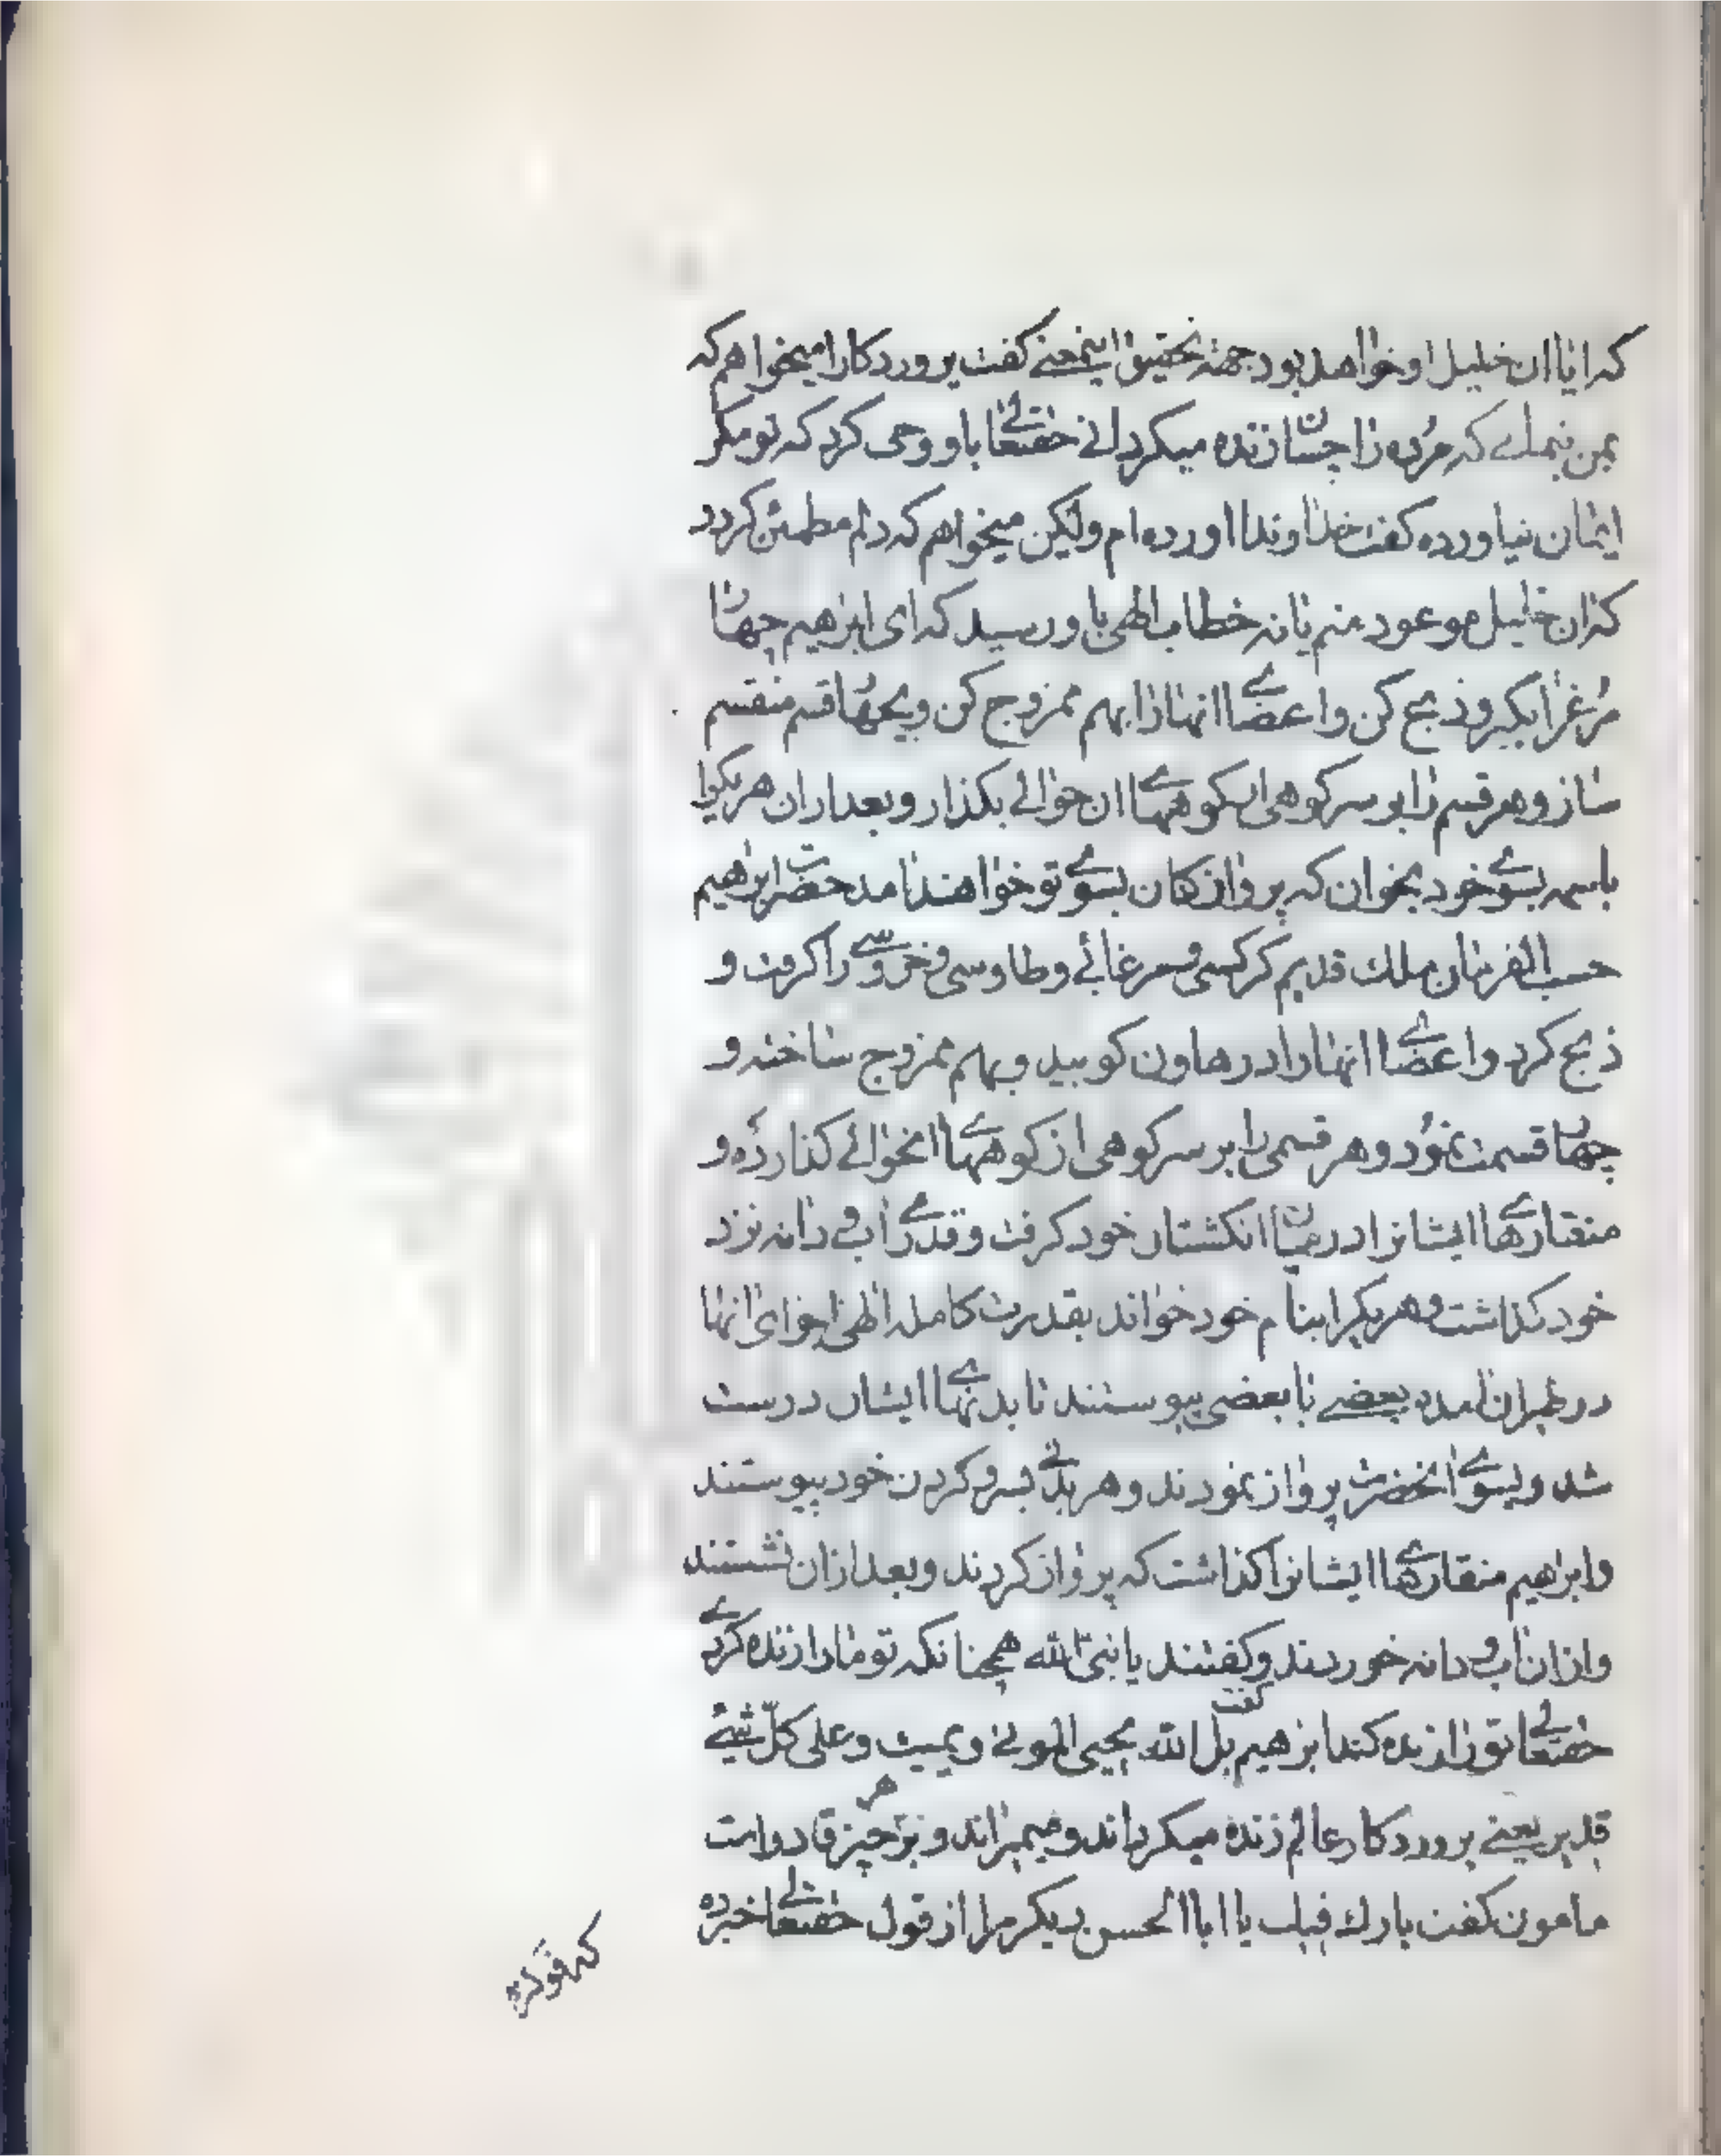 که ایا ان خلیل او خواهد بود جهته تحقیق اینمعنے کفت پروردکارا میخواهم که
بمن بنمائے که مرده را چسان زنده میکردانے حقتعالے باو وحی کرد که تو مکر
ایمان نیاورده کفت خداوندا اورده ام ولیکن میخواهم که دلم مطمئن کردد
که ان خلیل موعود منم یا نه خطاب الهی باو رسید که ای ابرهیم چهار
مرغرا بکیر و ذبح کن و اعضاے انها را بهم ممزوج کن و بچهار قسم منقسم
ساز و هر قسم را بر سر کوهی از کوههاے ان حوالے بکذار و بعد ازان هر یکرا
باسمه بسوے خود بخوان که پرواز کنان بسوے تو خواهند امد حضرت ابرهیم
حسب الفرمان ملک قدیم کرکسی و مرغابے و طاوسی و خروسے را کرفت و
ذبح کرد و اعضاے انها را در هاون کوبید و بهم ممزوج ساخته و
چهار قسمت نمود و هر قسمی را بر سر کوهی از کوههاے انحوالے کذارده و
منقارهاے ایشانرا در میان انکشتان خود کرفت و قدرے اب و دانه نزد
خود کذاشت و هر یکرا بنام خود خواند بقدرت کامله الهی اجزای انها
در طیران امده بعضے با بعضی پیوستند تا بدنهاے ایشان درست
شد و بسوے انحضرت پرواز نمودند و هر بدنے بسر و کردن خود پیوستند
و ابراهیم منقارهاے ایشانرا کذاشت که پرواز کردند و بعد ازان نشستند
و ازان اب و دانه خوردند و کفتند یا نبی الله همچنانکه تو ما را زنده کردے
حقتعالے تو را زنده کند ابرهیم کفت بل الله یحیی الموتے و یمیت و علی کلّ شیئے
قدیر یعنے پروردکار عالم زنده میکرداند و میمیراند و بر هر چیز قادر است
مامون کفت بارک فیک یا ابا الحسن دیکر مرا از قول حقتعالے خبر ده
که فوکزه